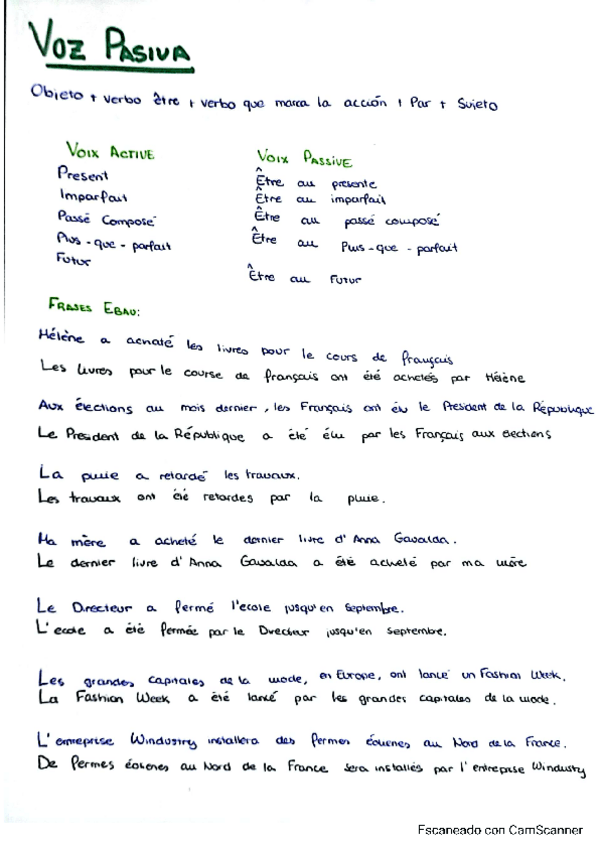 VOZ PASIVA
Objeto + verbo être + verbo que marca la acción + Par + Sujeto
VOIX ACTIVE
VOIX PASSIVE
Present
Être au presente
Imparfait
Être au imparfait
Passé Composé
Être au passé composé
Plus-que-parfait
Être au Plus-que-parfait
Futur
Être au Futur
FRASES EBAU:
Hélène a achaté les livres pour le cours de français
Les livres pour le course de français ont été achetés par Hélène
Aux élections au mois dernier, les Français ont élu le Président de la République
Le President de la République a été élu par les Français aux elections
La pluie a retardé les travaux.
Les travaux ont été retardes par la pluie.
Ma mère a acheté le dernier livre d'Anna Gavalda.
Le dernier livre d'Anna Gavalda a été acheté par ma mère
Le Directeur a fermé l'ecole jusqu'en septembre.
L'ecole a été fermée par le Directeur jusqu'en septembre.
Les grandes capitales de la mode, en Europe, ont lancé un Fashion Week.
La Fashion Week a été lancé par les grandes capitales de la mode.
L'entreprise Windustry installera des fermes éoliennes au Nord de la France.
De fermes éoliennes au Nord de la France sera installés par l'entreprise Windustry
Escaneado con CamScanner